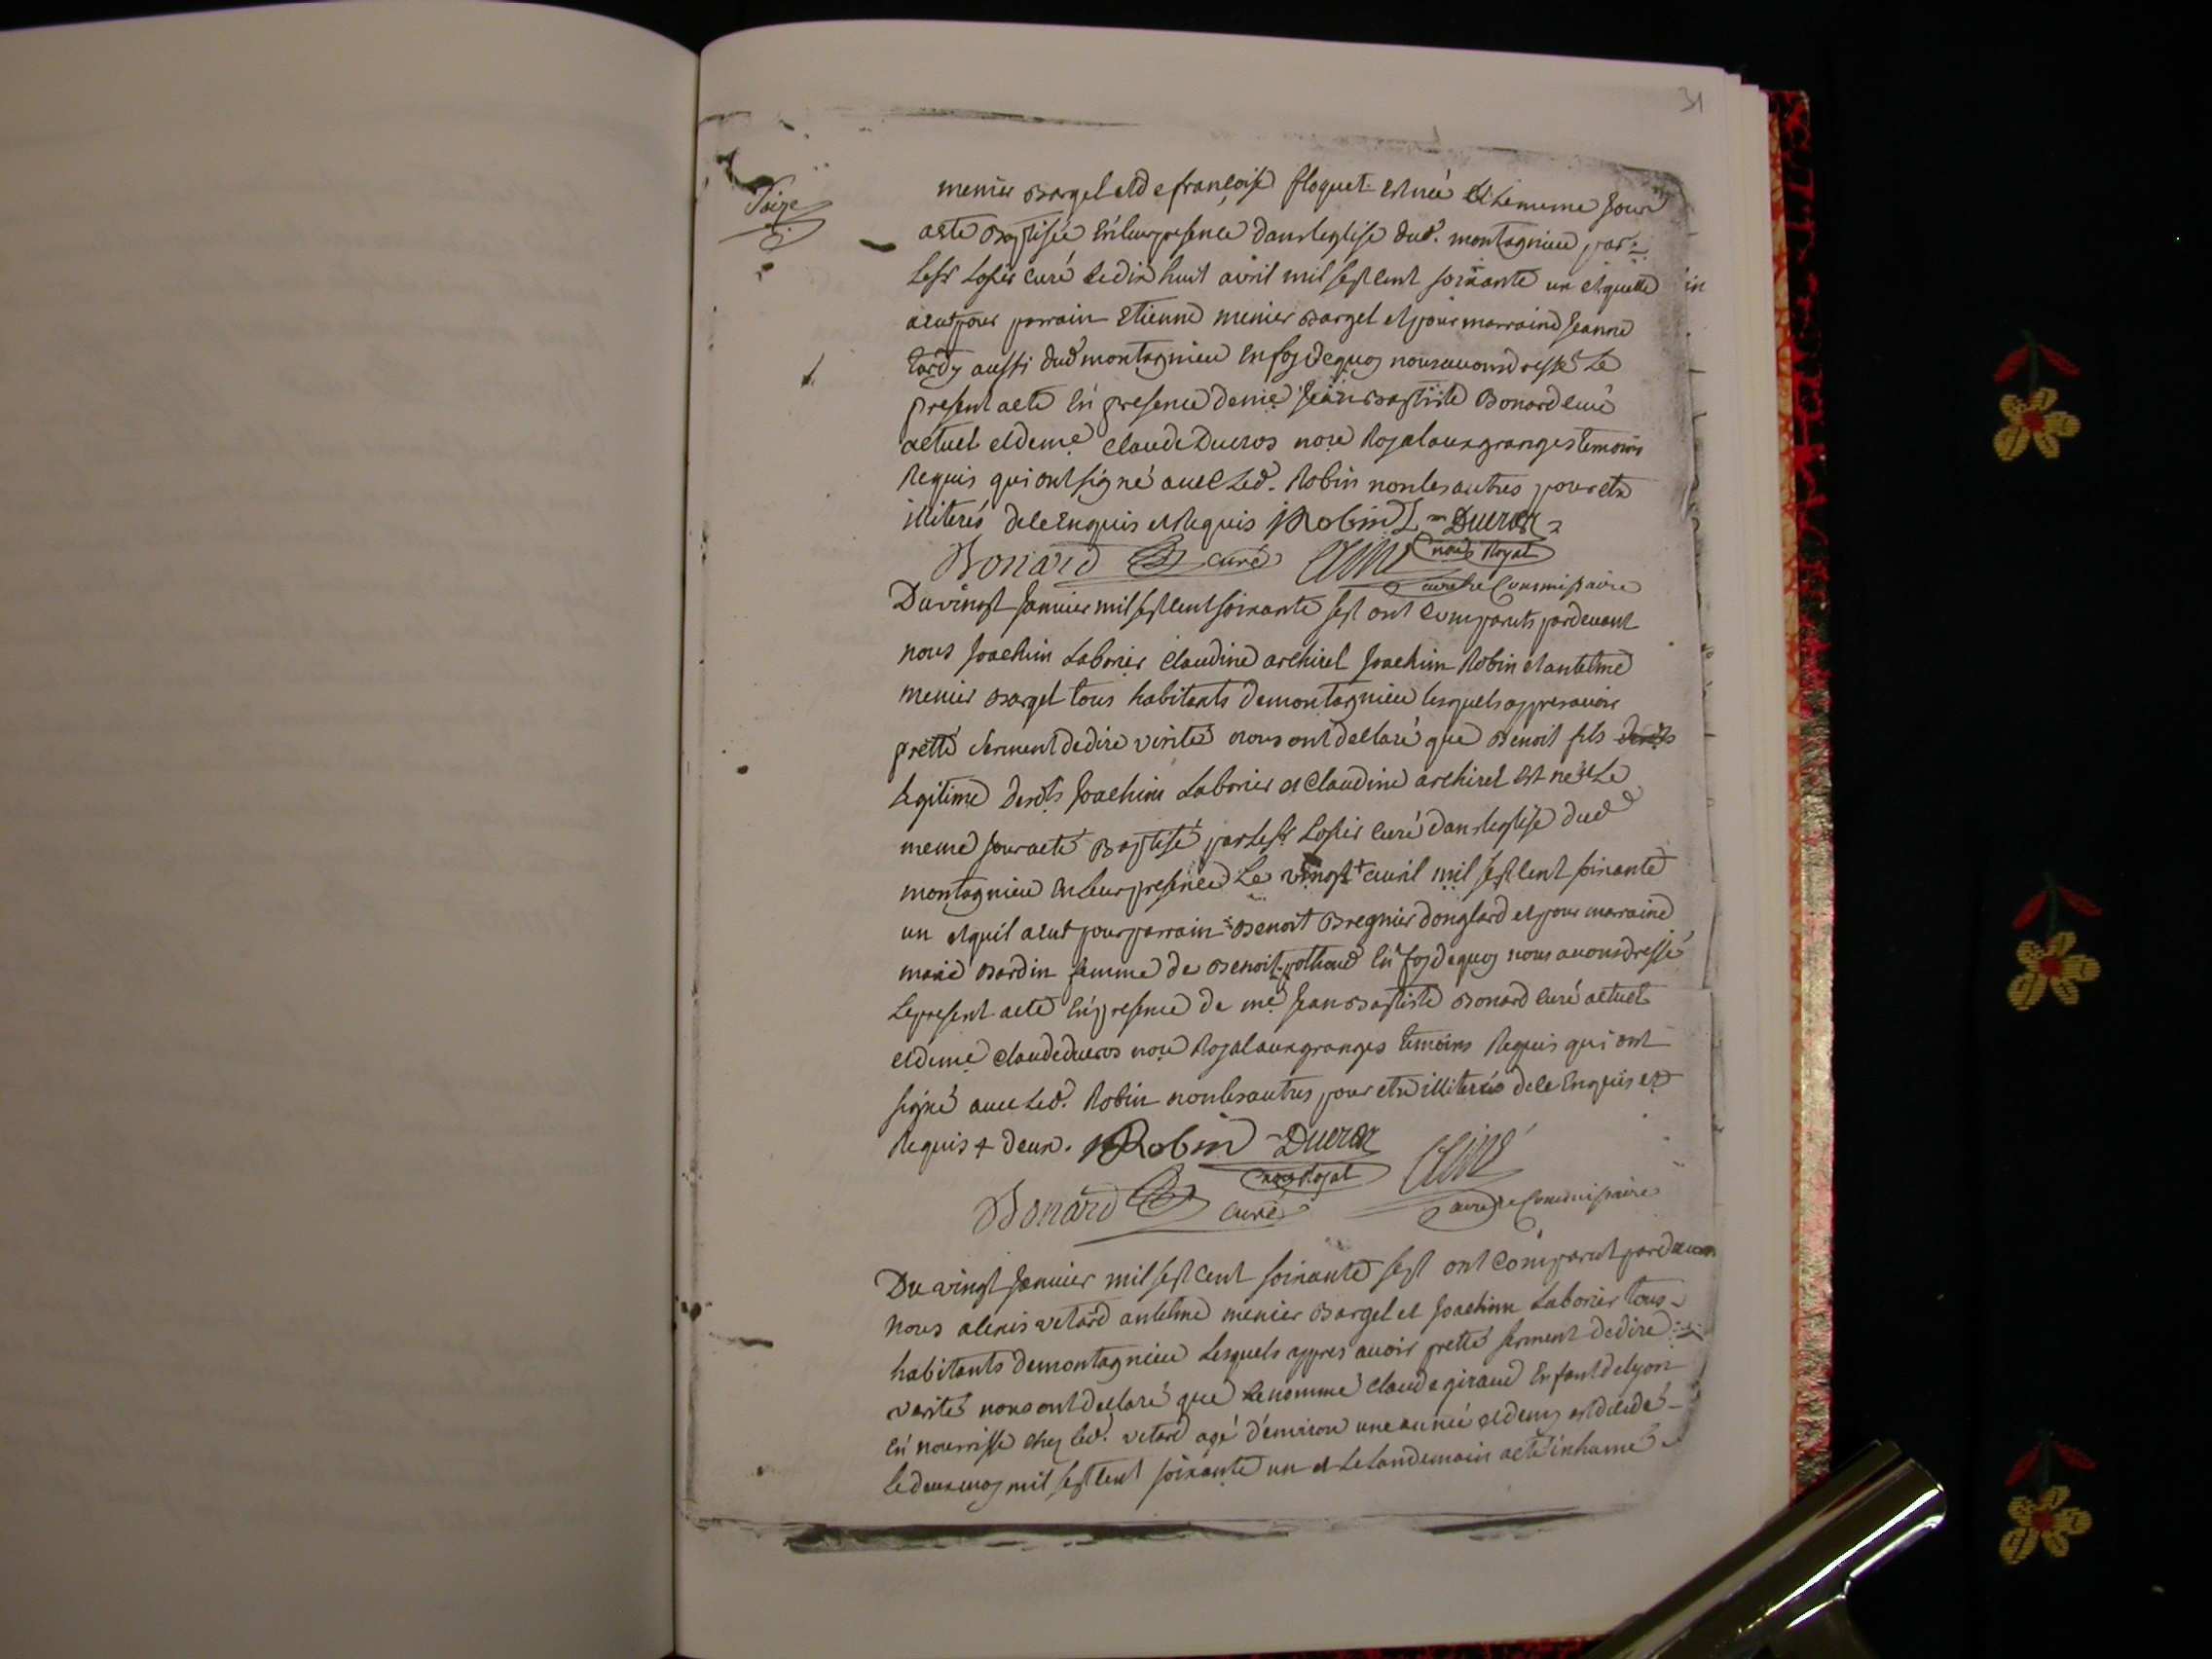 31
Seize
menier Bargel et de francoise floquet est née et le meme jour
a ete Baptisée En leur presence dans leglise dud. montagnieu par
le sr Losier curé le dix huit avril mil sept cent soixante un et quelle
a eut pour parrain Etienne menier Bargel et pour marraine Jeanne
tardy aussi dud montagnieu En foy de quoy nous avons dressé Le
present acte En presence de me Jean Baptiste Bonard curé
actuel et de me Claude Ducros nore Royal aux granges temoins
Requis qui ont signé avec Led. Robin non les autres pour etre
illiterés de ce Enquis et Requis J Robin Ducros
nore Royal
Bonard curé
curé Commissaire
Du vingt Janvier mil sept cent soixante sept ont comparuts pardevant
nous Joachim Laborier Claudine archirel Joachim Robin et antelme
menier Bargel tous habitants de montagnieu lesquels appres avoir
pretté serment de dire verité nous ont declaré que Benoit fils desdts
legitime desdts Joachim Laborier et Claudine archirel est né et Le
meme jour a eté Baptisé par le sr Losier curé dans leglise dud
montagnieu en leur presence Le vingt + avril mil sept cent soixante
un et quil a eut pour parrain Benoit Bregnier donglard et pour marraine
marie Bardin femme de Benoit pothoud En foy de quoy nous avons dressé
Le present acte En presence de me Jean Baptiste Bonard curé actuel
et de me Claude ducros nore Royal aux granges temoins Requis qui ont
signé avec Led. Robin non les autres pour etre illiterés de ce Enquis et
Requis + deux. J Robin Ducros
nore Royal
Bonard curé
curé Commissaire
Du vingt Janvier mil sept cent soixante sept ont comparut pardevan
nous alexis vetard antelme menier Bargel et Joachim Laborier tous
habitants de montagnieu Lesquels appres avoir pretté serment de dire
verité nous ont declaré que Le nommé Claude giraud Enfant de lyon
En nourrisse chez led. vetard agé d'environ une année et demy est decedé
le deux may mil sept cent soixante un et Le Landemain a eté inhumé